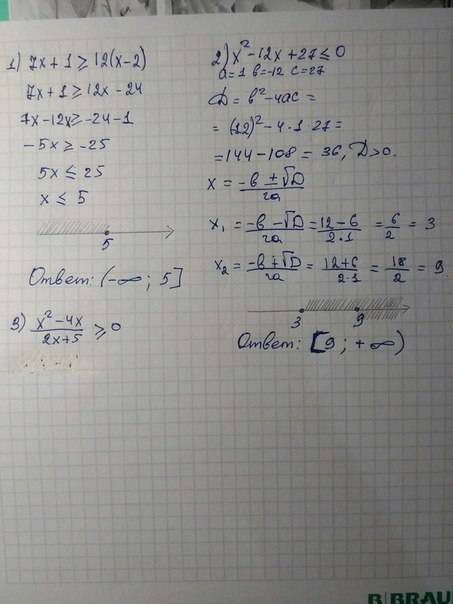 1) 7x + 1 ≥ 12(x-2)
7x + 1 ≥ 12x - 24
7x - 12x ≥ -24 - 1
-5x ≥ -25
5x ≤ 25
x ≤ 5
5
Ответ: (-∞; 5]
3) (x² - 4x)/(2x+5) ≥ 0
2) x² - 12x + 27 ≤ 0
a = 1 b = -12 c = 27
D = b² - 4ac =
= (12)² - 4·1 27 =
= 144 - 108 = 36, D > 0.
x = (-b ± √D)/2a
x₁ = (-b - √D)/2a = (12 - 6)/2·1 = 6/2 = 3
x₂ = (-b + √D)/2a = (12 + 6)/2·1 = 18/2 = 9.
3 9
Ответ: [9; +∞)
B|BRAU